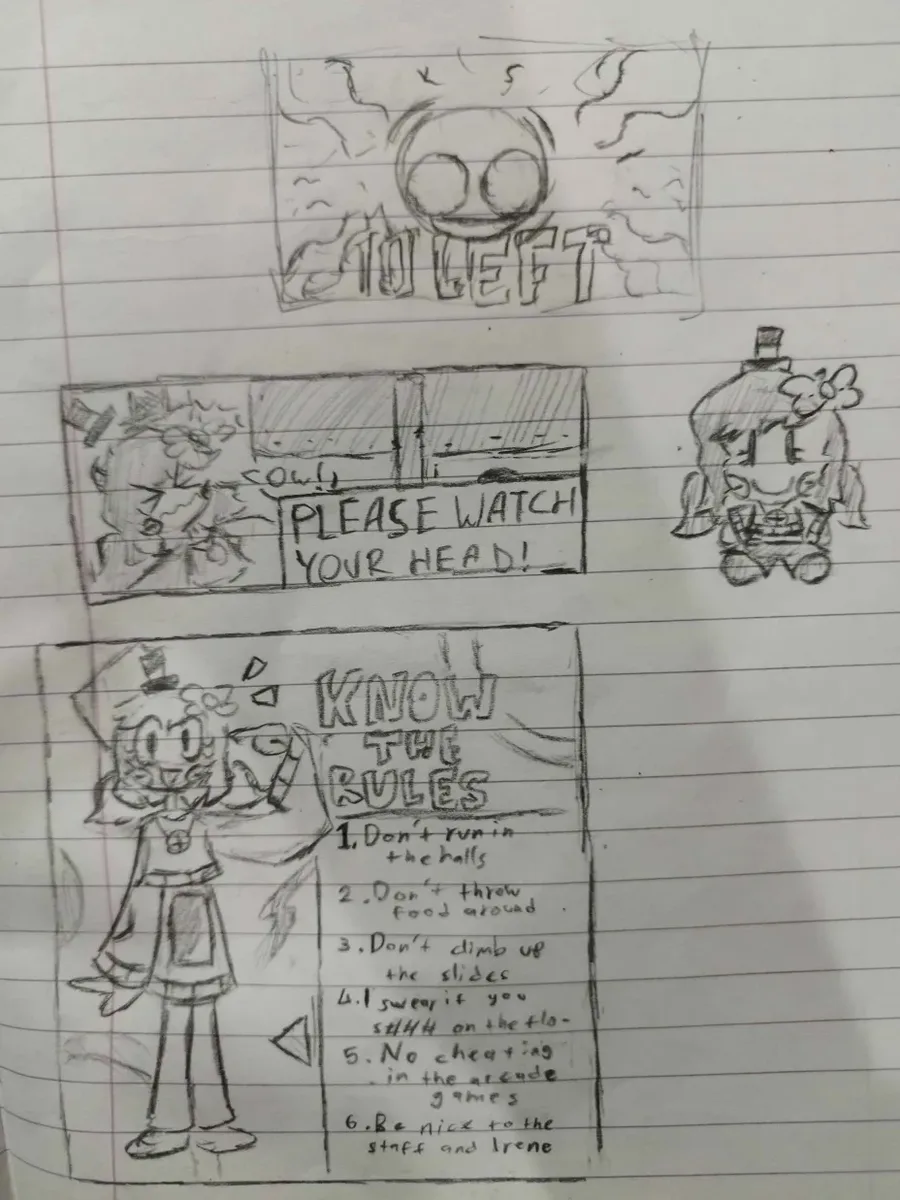 TO LEFT
OW!!
PLEASE WATCH
YOUR HEAD!
KNOW
THE
RULES
1. Don't run in
the halls
2. Don't throw
food around.
3. Don't climb up
the slides
4. I swear if you
s### on the flo-
5. No cheating
in the arcade
games
6. Be nice to the
staff and Irene